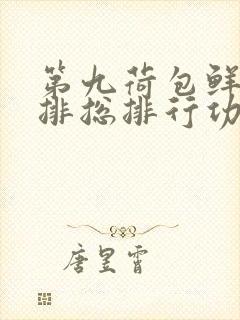 第九荷包鲜
排总排行功
唐昱霄